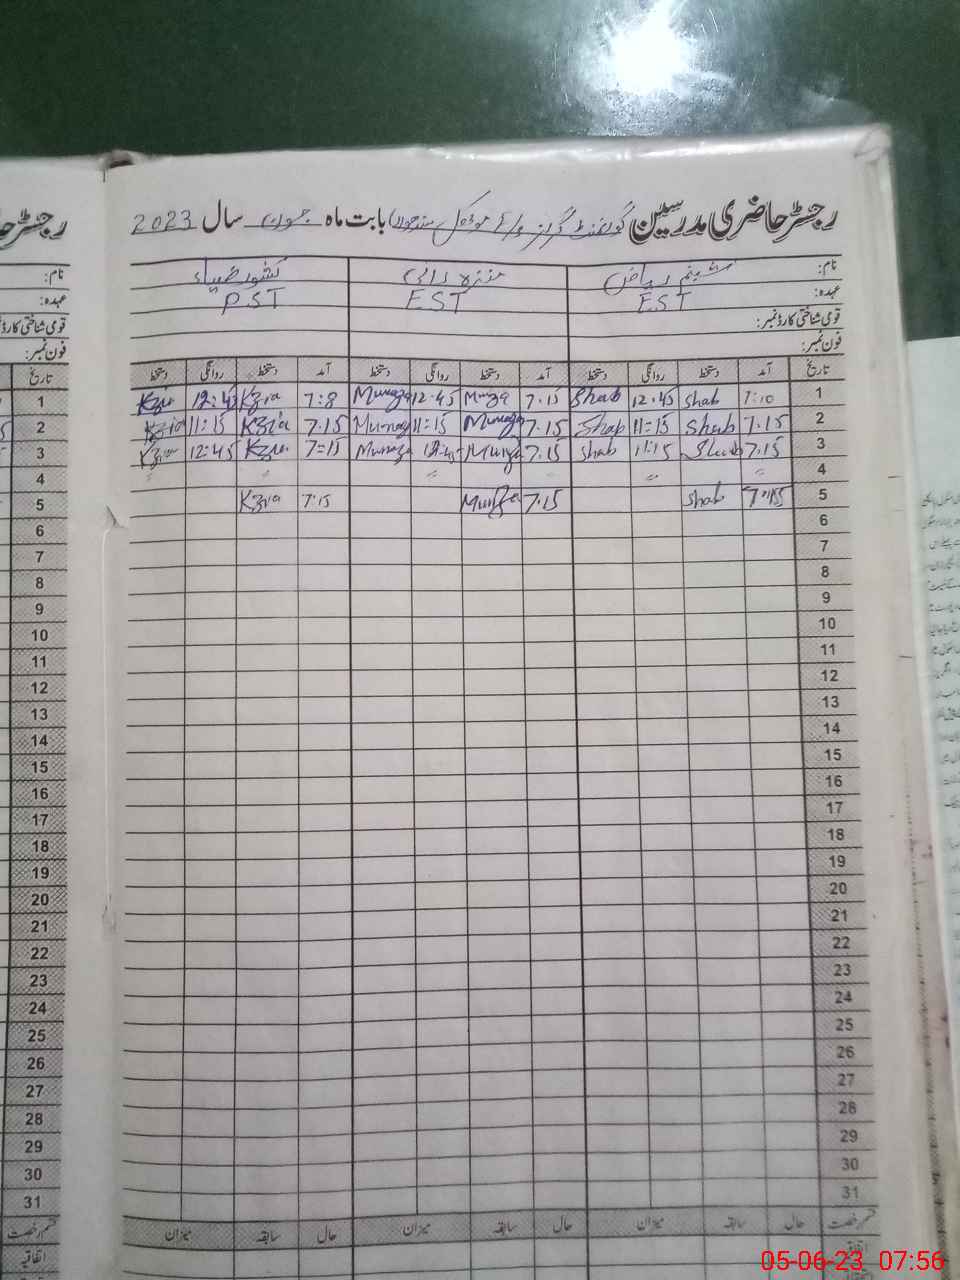 رجسٹر حاضری مدرسین گورنمنٹ گرلز بابت ماہ جون سال 2023
نام: شبنم ریاض منزہ رانی کشور ضیاء
عہدہ: EST EST PST
قومی شناختی کارڈ نمبر:
فون نمبر:
تاریخ آمد دستخط روانگی دستخط آمد دستخط روانگی دستخط آمد دستخط روانگی دستخط
1 7:10 Shab 12:45 Shab 7.15 Munza 12:45 Munaza 7:8 Kzia 12:45 Kzia
2 7.15 Shab 11:15 Shap 7.15 Munaza 11:15 Munaza 7.15 Kzia 11:15 Kzia
3 7.15 Shab 11:15 Shab 7.15 Munza 12:45 Munaza 7=15 Kzia 12:45 Kzia
4
5 7:15 Shab 7.15 Munza 7:15 Kzia
6
7
8
9
10
11
12
13
14
15
16
17
18
19
20
21
22
23
24
25
26
27
28
29
30
31
قسم رخصت حال سابقہ میزان حال سابقہ میزان حال سابقہ میزان
اتفاقیہ
رجسٹر حا
نام:
عہدہ:
قومی شناختی کارڈ
فون نمبر:
تاریخ
1
2
3
4
5
6
7
8
9
10
11
12
13
14
15
16
17
18
19
20
21
22
23
24
25
26
27
28
29
30
31
قسم رخصت
اتفاقیہ
05-06-23 07:56